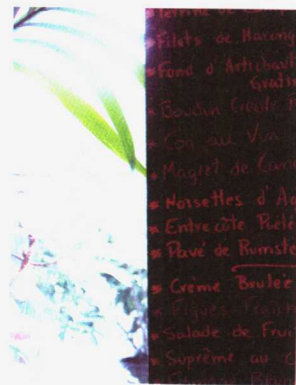 Terrine de
Filets de Hareng
Fond d'Artichaut
Gratin
Boudin Créole
Coq au Vin
Magret de Cana
Noisettes d'A
Entrecôte Poêlé
Pavé de Rumste
Crème Brulée
Salade de Frui
Suprême au